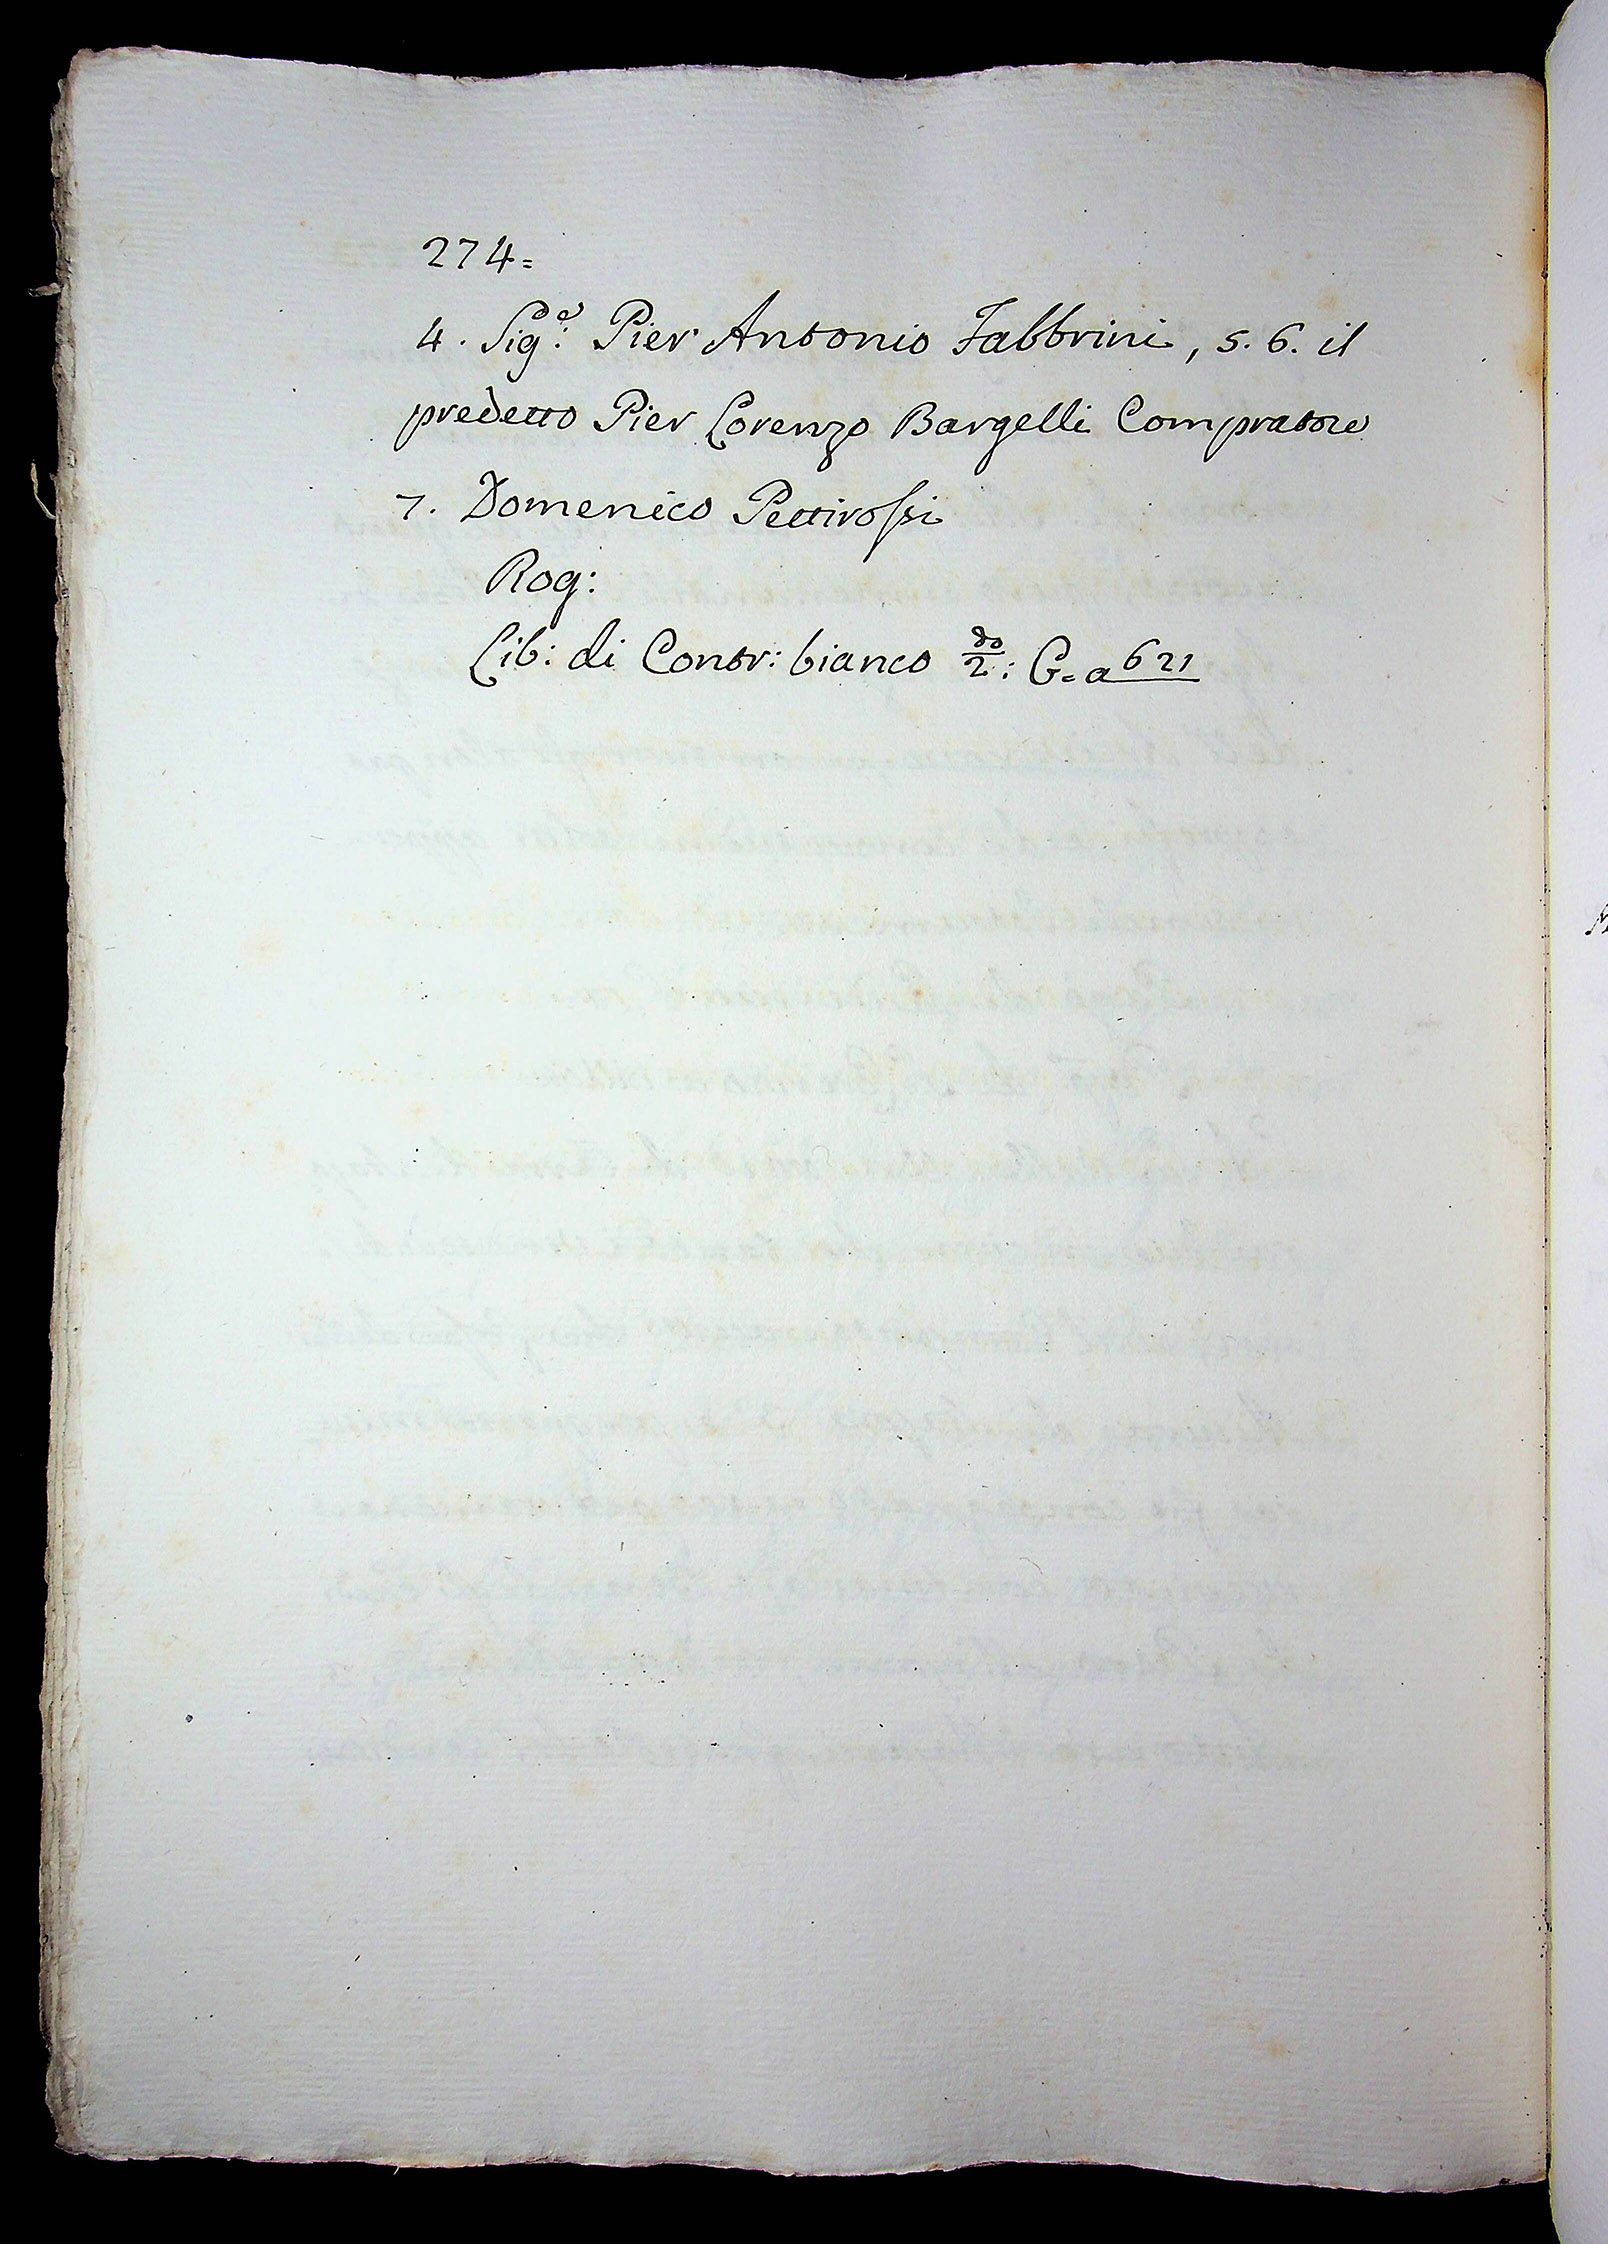 274=
4. Sig.e: Pier Antonio Fabbrini, 5. 6. il
predetto Pier Lorenzo Bargelli Compratore
7. Domenico Pettirossi
Rog:
Lib: di Contr: bianco 2.do: G= a 621